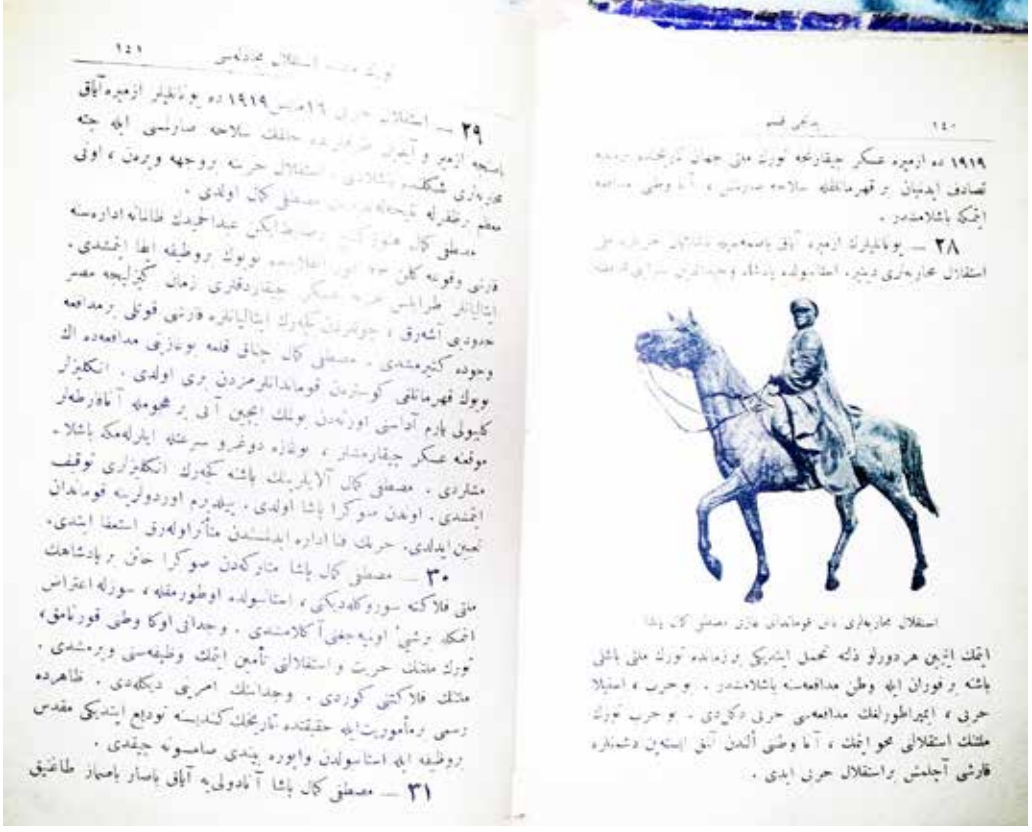 ١٤٠
يدنجى قسم
١٩١٩ ده ازميره عسكر چيقارنجه تورك ملتى جهان تاريخنده برمثلنه
تصادف ايدلميان بر قهرمانلقله سلاحه صارلمش ، آنا وطنى مدافعه
ايتمكه باشلامشدر .
٢٨ — يونانليلرك ازميره آياق باصمه‌سيله باشلايان حربلره ملى
استقلال محاربه‌لرى دينير. استانبولده پادشاه وحيدالدين سرايى
استقلال محاربه‌لرى باش قوماندانى غازى مصطفى كمال پاشا
ايتمك ايچين هر درلو ذلته تحمل ايتديكى بر زمانده تورك ملتى باشلى
باشنه بر فوران ايله وطن مدافعه‌سنه باشلامشدر . بو حرب ، استيلا
حربى ، ايمپراطورلغك مدافعه‌سى حربى دكلدى . بو حرب تورك
ملتنك استقلالنى محو ايتمك ، آنا وطنى ألندن آلمق ايسته‌ين دشمنلره
قارشى آچلمش بر استقلال حربى ايدى .
تورك ملتنك استقلال مجادله‌سى
١٤١
٢٩ — استقلال حربى ١٩١٩ ده يونانليلر ازميره آياق
باصنجه ازمير و آيدين طرفلرنده خلقك سلاحه صارلمسى ايله چته
محاربه‌لرى شكلنده باشلادى . استقلال حربنه بر وجهه ويرن ، اونى
معظم بر ظفرله نتيجه‌لنديرن مصطفى كمال اولدى .
مصطفى كمال هنوز كنج بر ضابط ايكن عبدالحميدك ظالمانه اداره‌سنه
قارشى وقوعه كلن انقلابنده بويوك بر وظيفه ايفا ايتمشدى .
ايتاليانلر طرابلس غربه عسكر چيقاردقلرى زمان گيزليجه مصر
حدودينى آشه‌رق ، چوللردن كچه‌رك ايتاليانلره قارشى قوتلى بر مدافعه
وجوده كتيرمشدى . مصطفى كمال چناق قلعه بوغازينى مدافعه‌ده اك
بويوك قهرمانلقى كوسترەن قوماندانلرمزدن برى اولدى . انكليزلر
كليبولى ياريم آداسنى اورته‌دن بولمك ايچين آنى بر هجومله آنافارطه‌لر
موقعنه عسكر چيقارمشلر ، بوغازه دوغرو سرعتله ايلرله‌مكه باشلا-
مشلردى . مصطفى كمال آلايلرينك باشنه كچه‌رك انكليزلرى توقيف
ايتمشدى . اوندن صوكرا پاشا اولدى . ييلديرم اوردولرينه قوماندان
تعيين ايدلدى. حربك فنا اداره ايدلمسندن متأثر اوله‌رق استعفا ايتدى.
٣٠ — مصطفى كمال پاشا متاركه‌دن صوكرا خائن بر پادشاهك
ملتى فلاكته سوروكله‌ديكنى ، استانبولده اوطورمقله ، سوزله اعتراض
ايتمكله برشى اوليه‌جغنى آكلامشدى . وجدانى اوكا وطنى قورتارمق ،
تورك ملتنك حريت و استقلالنى تأمين ايتمك وظيفه‌سنى ويرمشدى .
ملتك فلاكتنى كوردى . وجداننك امرينى ديكله‌دى . ظاهرده
رسمى بر مأموريت ايله حقيقتده تاريخك كنديسنه توديع ايتديكى مقدس
بر وظيفه ايله استانبولدن واپوره بيندى صامسونه چيقدى .
٣١ — مصطفى كمال پاشا آنادولى‌يه آياق باصار باصماز طاغنيق